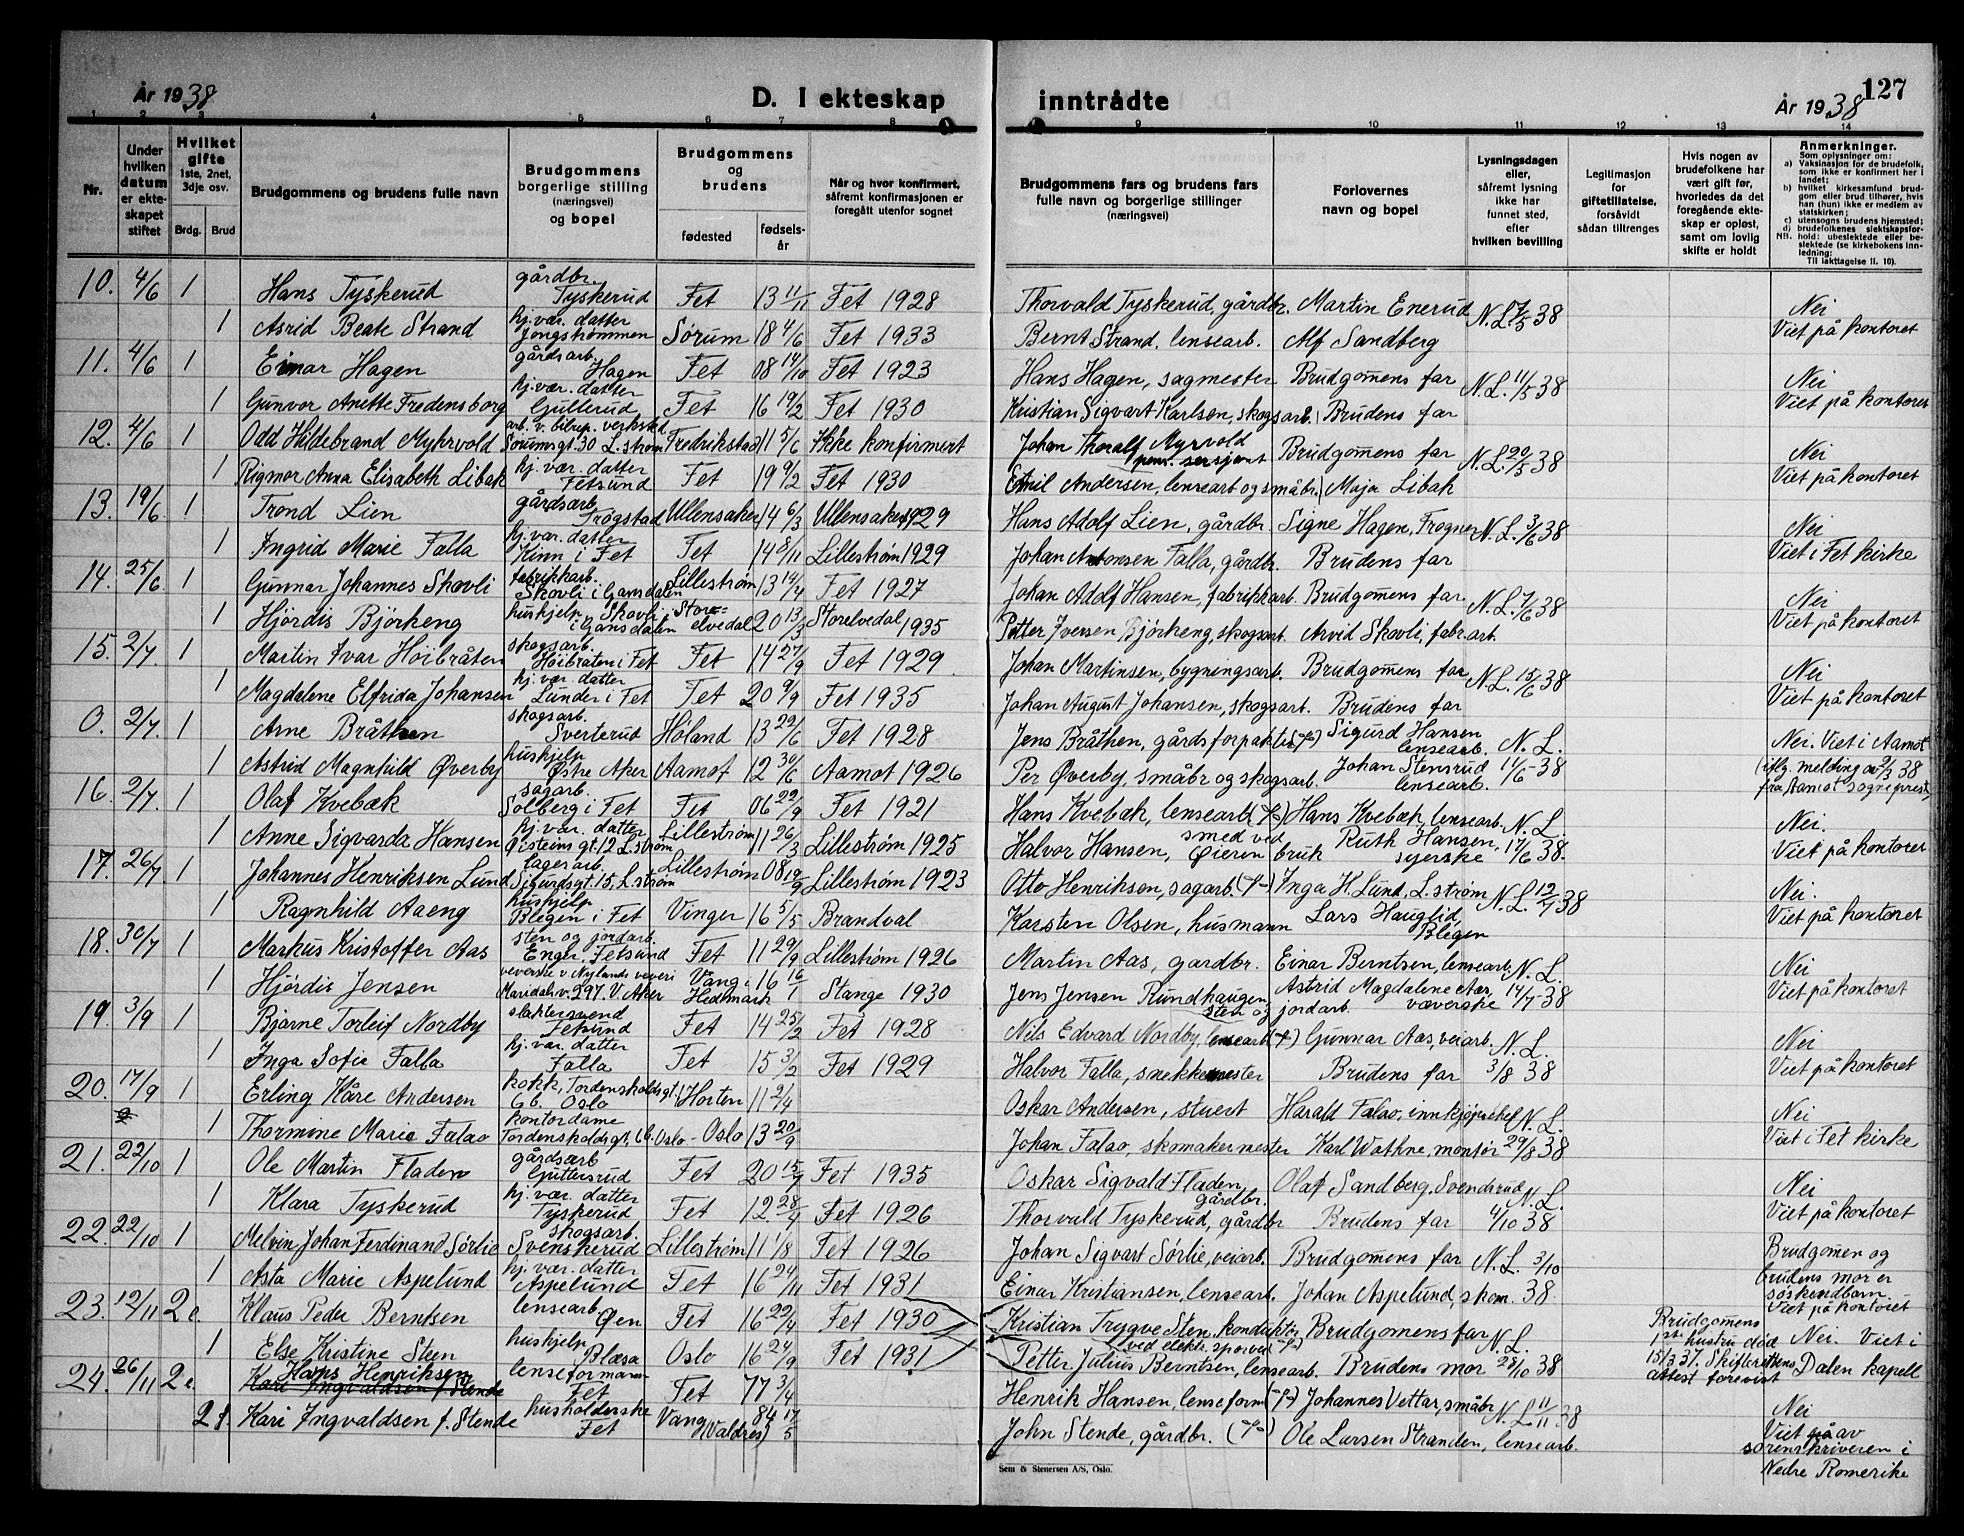 År 1938
D. I ekteskap
inntrådte
År 1938
127
1 2 3 4 5 6 7 8 9 10 11 12 13 14
Nr.
Under hvilken datum er ekteskapet stiftet
Hvilket gifte 1ste, 2net, 3dje osv.
Brdg. Brud
Brudgommens og brudens fulle navn
Brudgommens borgerlige stilling (næringsvei) og bopel
Brudgommens og brudens
fødested
fødselsår
Når og hvor konfirmert, såfremt konfirmasjonen er foregått utenfor sognet
Brudgommens fars og brudens fars fulle navn og borgerlige stillinger (næringsvei)
Forlovernes navn og bopel
Lysningsdagen eller, såfremt lysning ikke har funnet sted, efter hvilken bevilling
Legitimasjon for giftetillatelse, forsåvidt sådan tiltrenges
Hvis nogen av brudefolkene har vært gift før, hvorledes da det foregående ekteskap er opløst, samt om lovlig skifte er holdt
Anmerkninger.
Som oplysninger om:
a) Vaksinasjon for de brudefolk, som ikke er konfirmert her i landet;
b) hvilket kirkesamfund brudgom eller brud tilhører, hvis han (hun) ikke er medlem av statskirken;
c) utensogns brudens hjemsted;
d) brudefolkenes slektskapsforhold: ubeslektede eller beslektede (se kirkebokens innledning:
NB.
Til iakttagelse II. 10).
10. 4/6 1 Hans Tyskerud gårdbr. Tyskerud Fet 13 11/11 Fet 1928 Thorvald Tyskerud, gårdbr. Martin Enerud N.L. 7/5 38 Nei
1 Astrid Beate Strand hj.vær. datter Jongstrømmen Sørum 18 4/6 Fet 1933 Bernt Strand, lensearb. Alf Sandberg Viet på kontoret
11. 4/6 1 Einar Hagen gårdsarb. Hagen Fet 08 14/10 Fet 1923 Hans Hagen, sagmester Brudgomens far N.L. 11/5 38 Nei
1 Gunvor Anette Fredensborg hj.vær. datter Gullerud Fet 16 19/2 Fet 1930 Kristian Sigvart Karlsen, skogsarb. Brudens far Viet på kontoret
12. 4/6 1 Odd Hildebrand Myhrvold arb. v. bilrep. verksted Sørumsgt. 30 L.strøm Fredrikstad 11 5/6 Ikke konfirmert Johan Thoralf Myrvold pens. sersjant Brudgomens far N.L. 20/5 38 Nei
1 Rigmor Anna Elisabeth Libak hj. vær. datter Fetsund Fet 19 9/2 Fet 1930 Emil Andersen, lensearb og småbr. Maja Libak Viet på kontoret
13. 19/6 1 Trond Lien gårdsarb. Trøgstad Ullensaker 14 6/3 Ullensaker 1929 Hans Adolf Lien, gårdbr. Signe Hagen, Frogner N.L. 3/6 38 Nei
1 Ingrid Marie Falla hj.vær. datter Kinn i Fet Fet 14 8/11 Lillestrøm 1929 Johan Antonsen Falla, gårdbr. Brudens far Viet i Fet kirke
14. 25/6 1 Gunnar Johannes Skovli fabrikkarb. Skovli i Gansdalen Lillestrøm 13 14/4 Fet 1927 Johan Adolf Hansen, fabrikkarb. Brudgomens far N.L. 7/6 38 Nei
1 Hjördis Björkeng hushjelp, Skovli i Gansdalen Storelvedal 20 13/3 Storelvedal 1935 Petter Iversen Björkeng, skogsarb. Arvid Skovli, fabr.arb. Viet på kontoret
15. 2/7. 1 Martin Ivar Höibråten skogsarb. Höibråten i Fet Fet 14 27/9 Fet 1929 Johan Martinsen, bygningsarb. Brudgomens far N.L. 15/6 38 Nei
1 Magdalene Elfrida Johansen hj. vær. datter Lunder i Fet Fet 20 9/9 Fet 1935 Johan August Johansen, skogsarb. Brudens far Viet på kontoret
0. 2/7. 1 Arne Bråthen skogsarb. Sverterud Høland 13 22/6 Fet 1928 Jens Bråthen, gårdsforpakter Sigurd Hansen lensearb. N.L. Nei. Viet i Aamot
1 Astrid Magnhild Øverby hushjelp Østre Aker Aamot 12 30/6 Aamot 1926 Per Øverby, småbr og skogsarb. Johan Stensrud lensearb. 11/6 38 iflg. melding av 2/3 38 fra Aamot sogneprest
16. 2/7. 1 Olaf Kvebæk sagarb. Solberg i Fet Fet 06 22/9 Fet 1921 Hans Kvebæk, lensearb Hans Kvebæk, lensearb. N.L. Nei.
1 Anne Sigvarda Hansen hj. vær. datter Øisteins gt. 12 L.strøm Lillestrøm 11 26/3 Lillestrøm 1925 Halvor Hansen, smed ved Øieren bruk Ruth Hansen, syerske 17/6 38. Viet på kontoret
17. 26/7 1 Johannes Henriksen Lund lagerarb. Sigurdsgt. 15, L.strøm Lillestrøm 08 19/9 Lillestrøm 1923 Otto Henriksen, sagarb. Inga H. Lund, L.strøm N.L. 12/7 38 Nei.
1 Ragnhild Aaeng hushjelp Blegen i Fet Vinger 16 5/5 Brandval Karsten Olsen, husmann Lars Hauglid Blegen Viet på kontoret
18. 30/7 1 Markus Kristoffer Aas sten og jordarb. Enger, Fetsund Fet 11 29/9 Lillestrøm 1926 Martin Aas, gardbr. Einar Berntsen, lensearb N.L. Nei
1 Hjördis Jensen veverske v Nylands veveri Maridalsv. 297. V. Aker Vang i Hedmark 16 16/1 Stange 1930 Jens Jensen Rundhaugen sten og jordarb. Astrid Magdalene Aas, væverske 14/7 38 Viet på kontoret
19. 3/9 1 Bjarne Torleif Nordby slaktersvend Fetsund Fet 14 25/2 Fet 1928 Nils Edvard Nordby, lensearb Gunnar Aas, veiarb. N.L. Nei
1 Inga Sofie Falla hj. vær. datter Falla Fet 15 3/2 Fet 1929 Halvor Falla, snekkermester Brudens far 3/8 38 Viet på kontoret
20. 17/9 1 Erling Kåre Andersen kokk, Tordenskoldsgt. 6b. Oslo Horten 11 2/4 Oskar Andersen, stuert Harald Falao, innkjøpsskef N.L. Nei
1 Thormine Marie Falao kontordame Tordenskoldsgt. 6b. Oslo - Oslo 13 20/9 Johan Falao, skomakermester Karl Wathne, montør 29/8 38 Viet i Fet kirke
21. 22/10 1 Ole Martin Fladen gårdsarb Guttersrud Fet 20 15/7 Fet 1935 Oskar Sigvald Fladen, gårdbr. Olaf Sandberg, Svendsrud N.L. Nei
1 Klara Tyskerud hj. vær. datter Tyskerud Fet 12 28/4 Fet 1926 Thorvald Tyskerud, gårdbr Brudens far 4/10 38 Viet på kontoret
22. 22/10 1 Melvin Johan Ferdinand Sörlie skogsarb. Svenskerud Lillestrøm 11 1/8 Fet 1926 Johan Sigvart Sörlie, veiarb. Brudgomens far N.L. 3/10 Brudgomen og
1 Asta Marie Aspelund hj. vær. datter Aspelund Fet 16 24/11 Fet 1931 Einar Kristiansen, lensearb. Johan Aspelund, skom. 38 brudens mor er söskendbarn. Viet på kontoret
23. 12/11 2e. Klaus Peder Berntsen lensearb. Øen Fet 16 22/4 Fet 1930 Kristian Trygve Sten, konduktör ved elektr. sporvei Brudgomens far N.L. Brudgomens 1ste hustru död Nei. Viet i
1 Else Kristine Steen hushjelp Blæsa Oslo 16 24/9 Fet 1931 Petter Julius Berntsen, lensearb. Brudens mor 28/10 38 15/3 37. Skifterettens attest forevist Dalen kapell
24. 26/11 2e. Hans Henriksen Kari Ingvaldsen f. Stende lenseformann Fet Fet 77 3/4 Henrik Hansen, lenseform Johannes Vettar, småbr N.L. 11/11 38 Nei
2 f. Kari Ingvaldsen f. Stende husholderske Fet Vang (Valdres) 84 17/5 John Stende, gårdbr. Ole Larsen Stranden, lensearb. Viet på av sorenskriveren i Nedre Romerike
Sem & Stenersen A/S, Oslo.